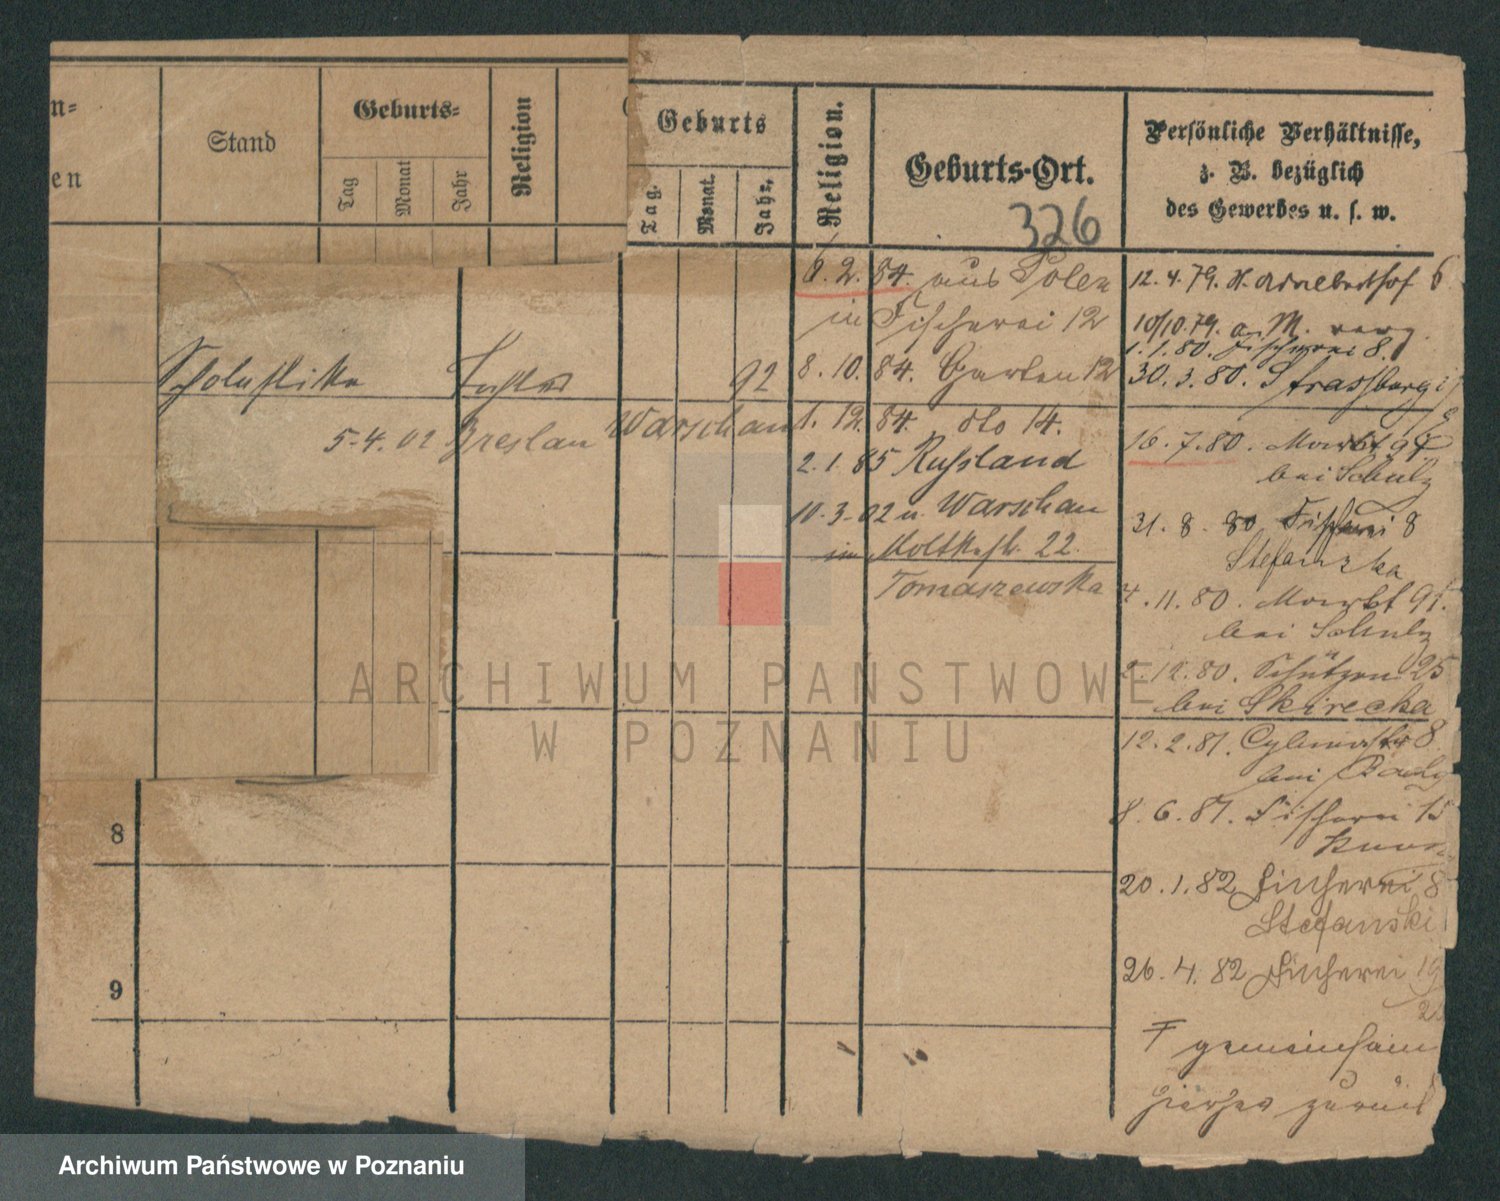 n=
en
Stand
Geburts=
Tag
Monat
Jahr
Religion
Geburts
Tag.
Monat.
Jahr.
Religion.
Geburts-Ort.
326
Persönliche Verhältnisse,
z. B. bezüglich
des Gewerbes u. s. w.
Scholastika
Tochter
92
5.4.02 Breslau Warschau
6.2.84. aus Polen
in Fischerei 12
8.10.84. Garten 12
1.12.84. dto 14.
2.1.85 Russland
10.3.02 u Warschau
in Moltkestr. 22.
Tomaszewska
12.4.79. 6
10/10.79.
1.1.80. Fischerei 8.
30.3.80. Strassburg
16.7.80. Markt
bei Schulz
31.8.80 Fischerei 8
Stefanska
4.11.80. Markt 91.
bei Schulz
2.12.80. Schützen 25
bei Skirecka
12.2.81. 8
bei
8.6.81. Fischerei 15
20.1.82 Fischerei 8
Stefanski
26.4.82 Fischerei 19
gemeinsam
hierher zurück
8
9
ARCHIWUM PAŃSTWOWE
W POZNANIU
Archiwum Państwowe w Poznaniu